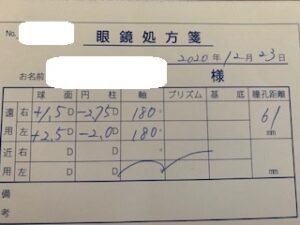 No.
眼鏡処方箋
2020年12月23日
お名前 様
球面 円柱 軸 プリズム 基底 瞳孔距離
遠用 右 +1,50 D -2,75 D 180° 61 mm
左 +2,50 D -2,00 D 180°
近用 右 D D ° mm
左 D D
備考